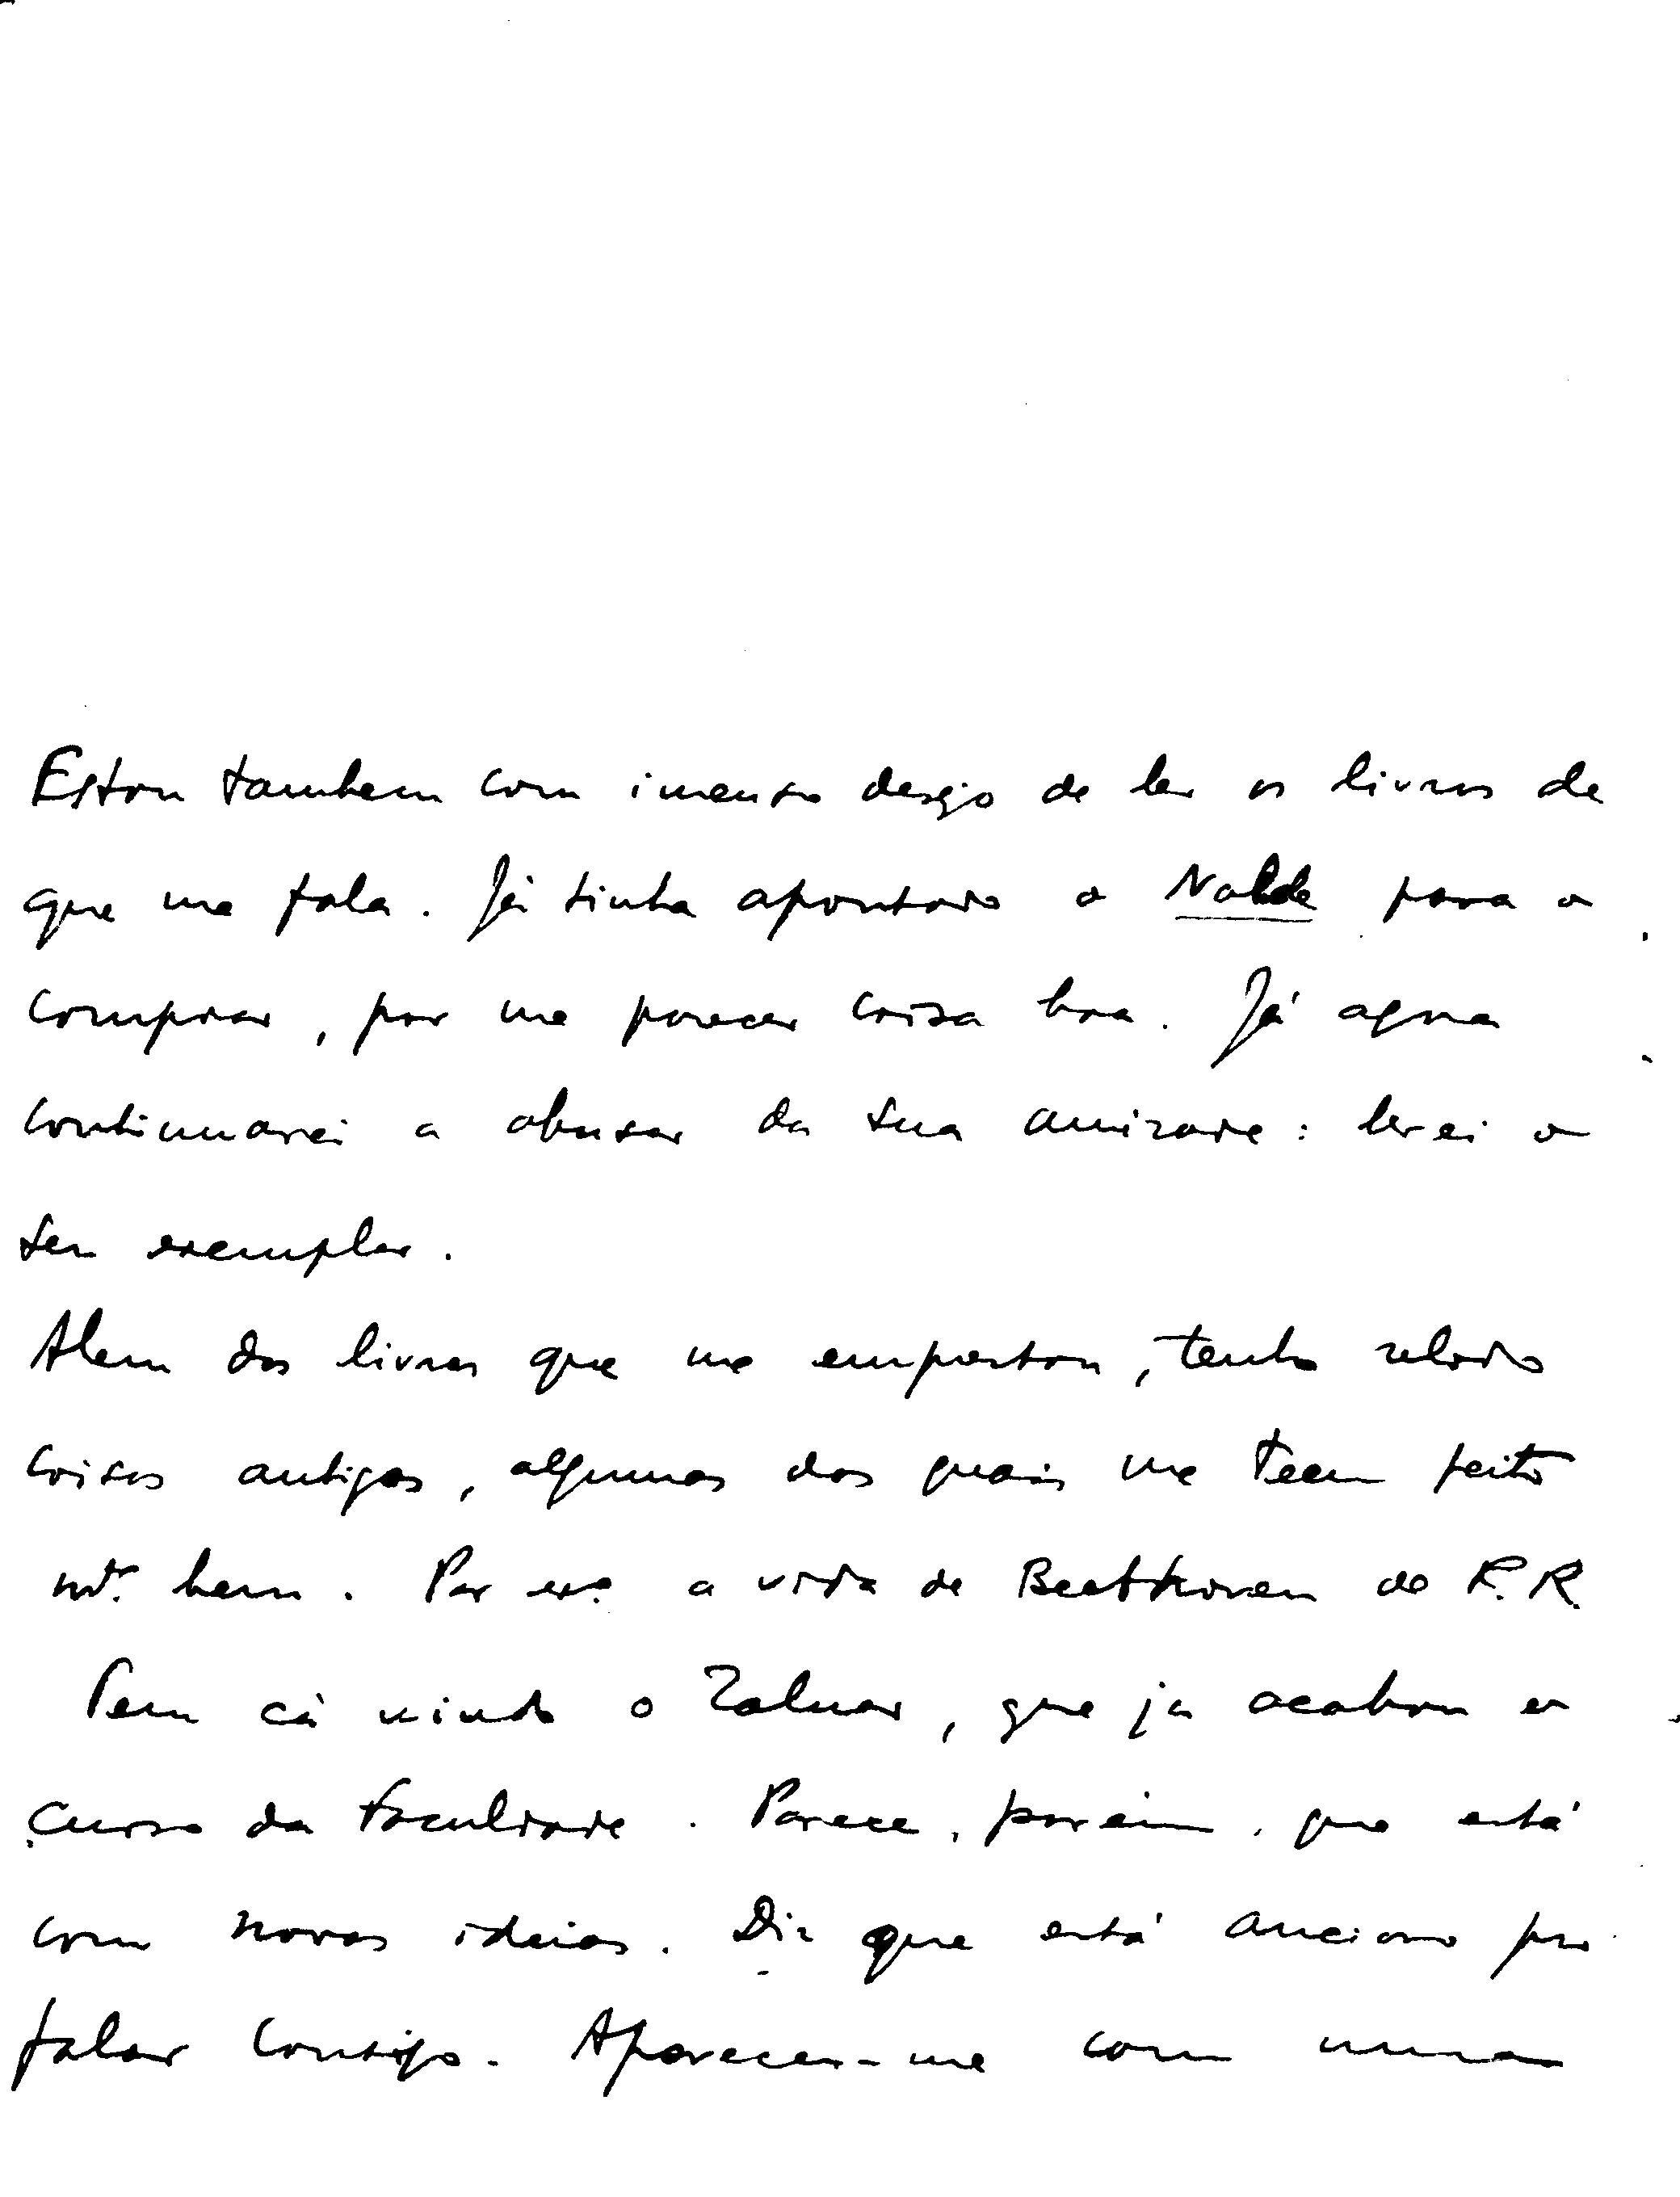 Estou tambem com imenso desejo de ler os livros de
que me fala. Já tinha apontado o Nolde para o
comprar, por me parecer coisa boa. Já agora
continuarei a abusar da sua amizade: lerei o
seu exemplar.
Alem dos livros que me emprestou, tenho relido
coisas antigas, algumas das quais me teem feito
mtº. bem. Por exº. a vida de Beethoven do R. R.
Tem cá vindo o Zaluar, que ja acabou o
curso da Faculdade. Parece, porém, que está
com novas ideias. Diz que está ancioso por
falar consigo. Apareceu-me com uma